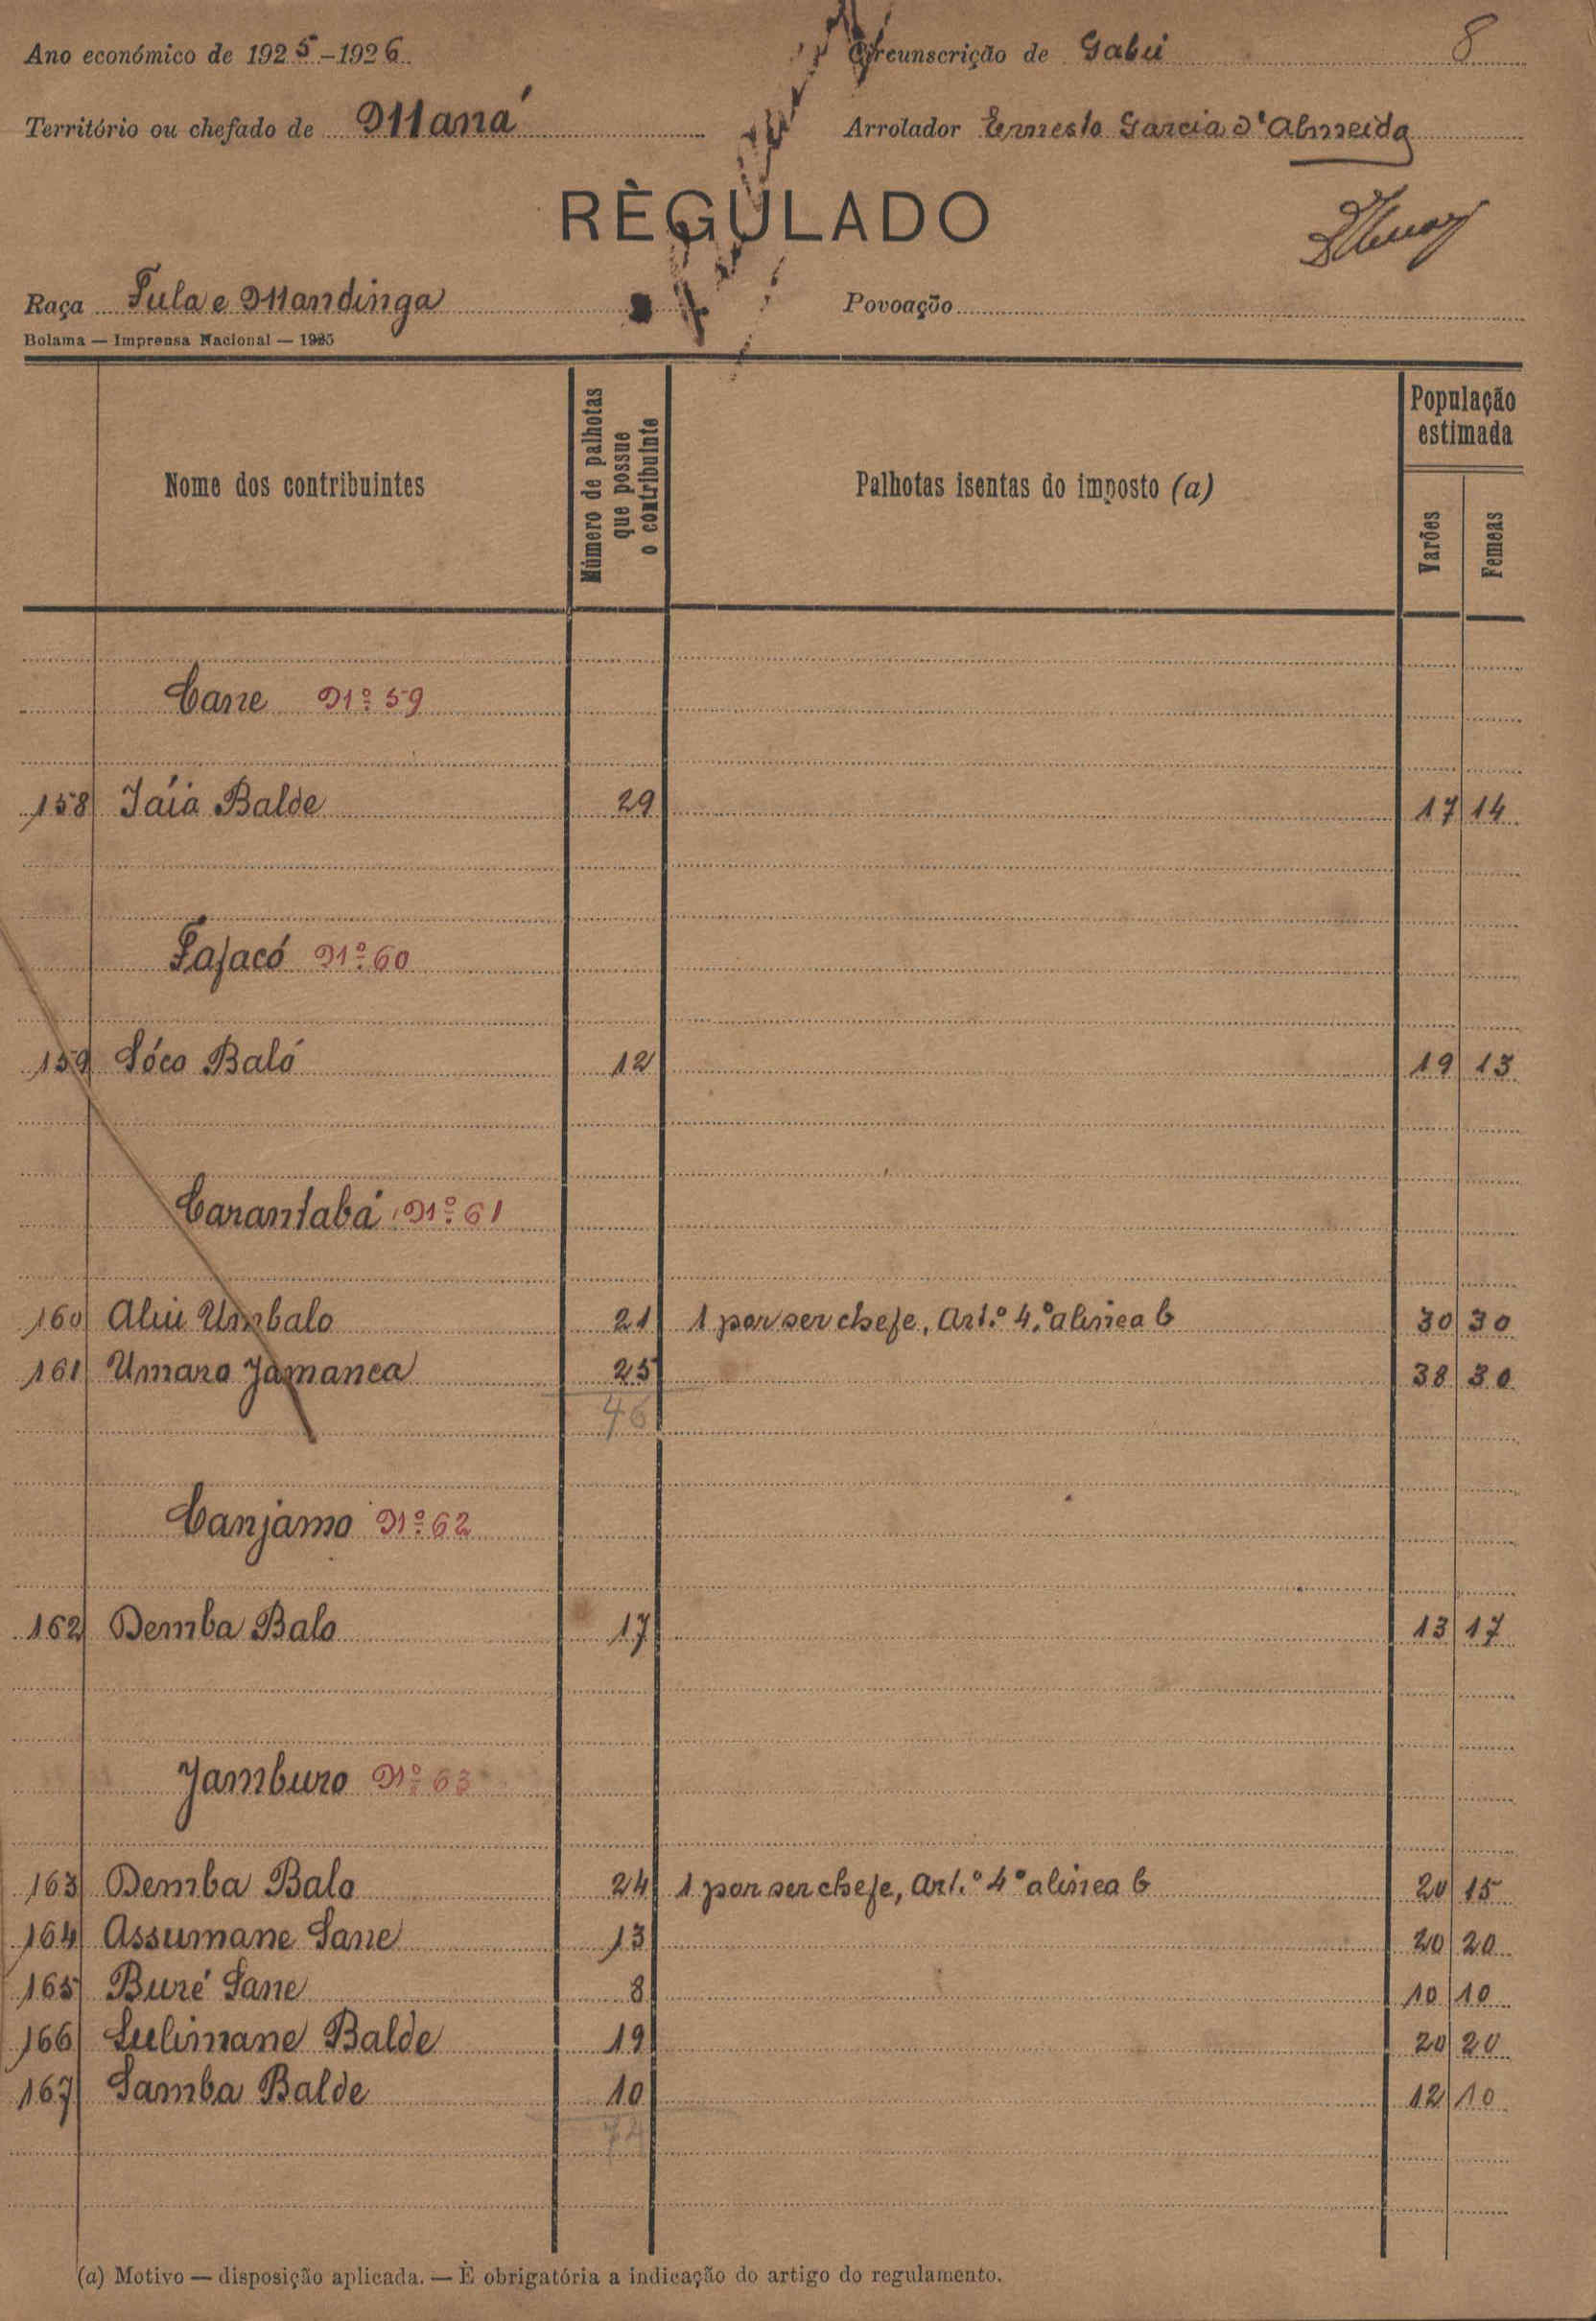 Ano económico de 1925-1926
Circunscrição de Gabú
8
Território ou chefado de Maná
Arrolador Ernesto Garcia d'Almeida
RÈGULADO
Raça Fula e Mandinga
Povoação
Bolama — Imprensa Nacional — 1925
Nome dos contribuintes
Número de palhotas que possue o contribuinte
Palhotas isentas do imposto (a)
População estimada
Varões
Femeas
Cane Nº 59
158 Iáia Balde 29 17 14
Fajacó Nº 60
159 Sóco Baló 12 19 13
Carantabá Nº 61
160 Aliu Umbalo 21 1 por ser chefe, Art.º 4.º alinea b 30 30
161 Umaro Jamanca 25 38 30
46
Canjamo Nº 62
162 Demba Balo 17 13 17
Jamburo Nº 63
163 Demba Balo 24 1 por ser chefe, Art.º 4º alinea b 20 15
164 Assumane Sane 13 20 20
165 Buré Sane 8 10 10
166 Sulimane Balde 19 20 20
167 Samba Balde 10 12 10
74
(a) Motivo — disposição aplicada. — È obrigatória a indicação do artigo do regulamento.